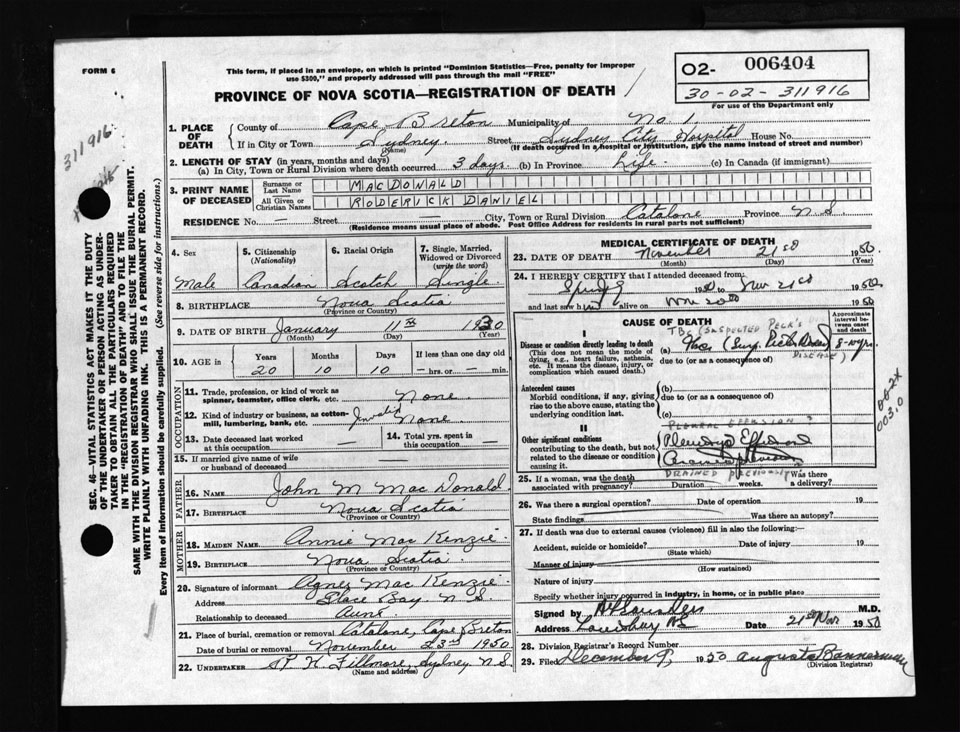 FORM 6
This form, if placed in an envelope, on which is printed "Dominion Statistics—Free, penalty for improper
use $300," and properly addressed will pass through the mail "FREE"
PROVINCE OF NOVA SCOTIA—REGISTRATION OF DEATH
O2- 006404
30-02-311916
For use of the Department only
311916
SEC. 46—VITAL STATISTICS ACT MAKES IT THE DUTY
OF THE UNDERTAKER OR PERSON ACTING AS UNDER-
TAKER TO OBTAIN ALL THE PARTICULARS REQUIRED
IN THE "REGISTRATION OF DEATH" AND TO FILE THE
SAME WITH THE DIVISION REGISTRAR WHO SHALL ISSUE THE BURIAL PERMIT.
WRITE PLAINLY WITH UNFADING INK. THIS IS A PERMANENT RECORD.
Every item of information should be carefully supplied. (See reverse side for instructions.)
1. PLACE OF DEATH County of Cape Breton Municipality of No. 1
If in City or Town Sydney Street Sydney City Hospital House No.
(Name) (If death occurred in a hospital or institution, give the name instead of street and number)
2. LENGTH OF STAY (in years, months and days)
(a) In City, Town or Rural Division where death occurred 3 days. (b) In Province Life. (c) In Canada (if immigrant)
3. PRINT NAME OF DECEASED Surname or Last Name MACDONALD
All Given or Christian Names RODERICK DANIEL
RESIDENCE No. — Street — City, Town or Rural Division Catalone Province N.S.
(Residence means usual place of abode. Post Office Address for residents in rural parts not sufficient)
4. Sex 5. Citizenship (Nationality) 6. Racial Origin 7. Single, Married, Widowed or Divorced (write the word)
Male Canadian Scotch Single
8. BIRTHPLACE Nova Scotia
(Province or Country)
9. DATE OF BIRTH January 11th 1930
(Month) (Day) (Year)
10. AGE in Years Months Days If less than one day old
20 10 10 — hrs. or — min.
OCCUPATION
11. Trade, profession, or kind of work as spinner, teamster, office clerk, etc. None
12. Kind of industry or business, as cotton-mill, lumbering, bank, etc. Invalid None
13. Date deceased last worked at this occupation — 14. Total yrs. spent in this occupation —
15. If married give name of wife or husband of deceased —
FATHER
16. NAME John M. MacDonald
17. BIRTHPLACE Nova Scotia
(Province or Country)
MOTHER
18. MAIDEN NAME Annie MacKenzie
19. BIRTHPLACE Nova Scotia
(Province or Country)
20. Signature of informant Agnes MacKenzie
Address Glace Bay N.S.
Relationship to deceased Aunt
21. Place of burial, cremation or removal Catalone, Cape Breton
Date of burial or removal November 23rd 1950
22. UNDERTAKER H. Fillmore, Sydney N.S.
(Name and address)
MEDICAL CERTIFICATE OF DEATH
23. DATE OF DEATH November 21st 1950
(Month) (Day) (Year)
24. I HEREBY CERTIFY that I attended deceased from:
Spring 1950 to Nov 21st 1950
and last saw him alive on Nov 20th 1950
CAUSE OF DEATH
Approximate interval between onset and death
I
TBC (SUSPECTED PECK'S DISEASE)
Disease or condition directly leading to death
(This does not mean the mode of dying, e.g., heart failure, asthenia, etc. It means the disease, injury, or complication which caused death.)
(a) 8-10 yrs.
due to (or as a consequence of)
Antecedent causes
Morbid conditions, if any, giving rise to the above cause, stating the underlying condition last.
(b)
due to (or as a consequence of)
(c)
II
Other significant conditions contributing to the death, but not related to the disease or condition causing it.
PLEURAL EFFUSION
DRAINED PREVIOUSLY
002X
003.0
25. If a woman, was the death associated with pregnancy? Duration weeks. Was there a delivery?
26. Was there a surgical operation? Date of operation 19
State findings Was there an autopsy?
27. If death was due to external causes (violence) fill in also the following:—
Accident, suicide or homicide? Date of injury 19
(State which)
Manner of injury
(How sustained)
Nature of injury
Specify whether injury occurred in industry, in home, or in public place
Signed by M.D.
Address Louisburg NS Date 21st Nov 1950
28. Division Registrar's Record Number
29. Filed December 9, 1950 Augusta Bannerman
(Division Registrar)